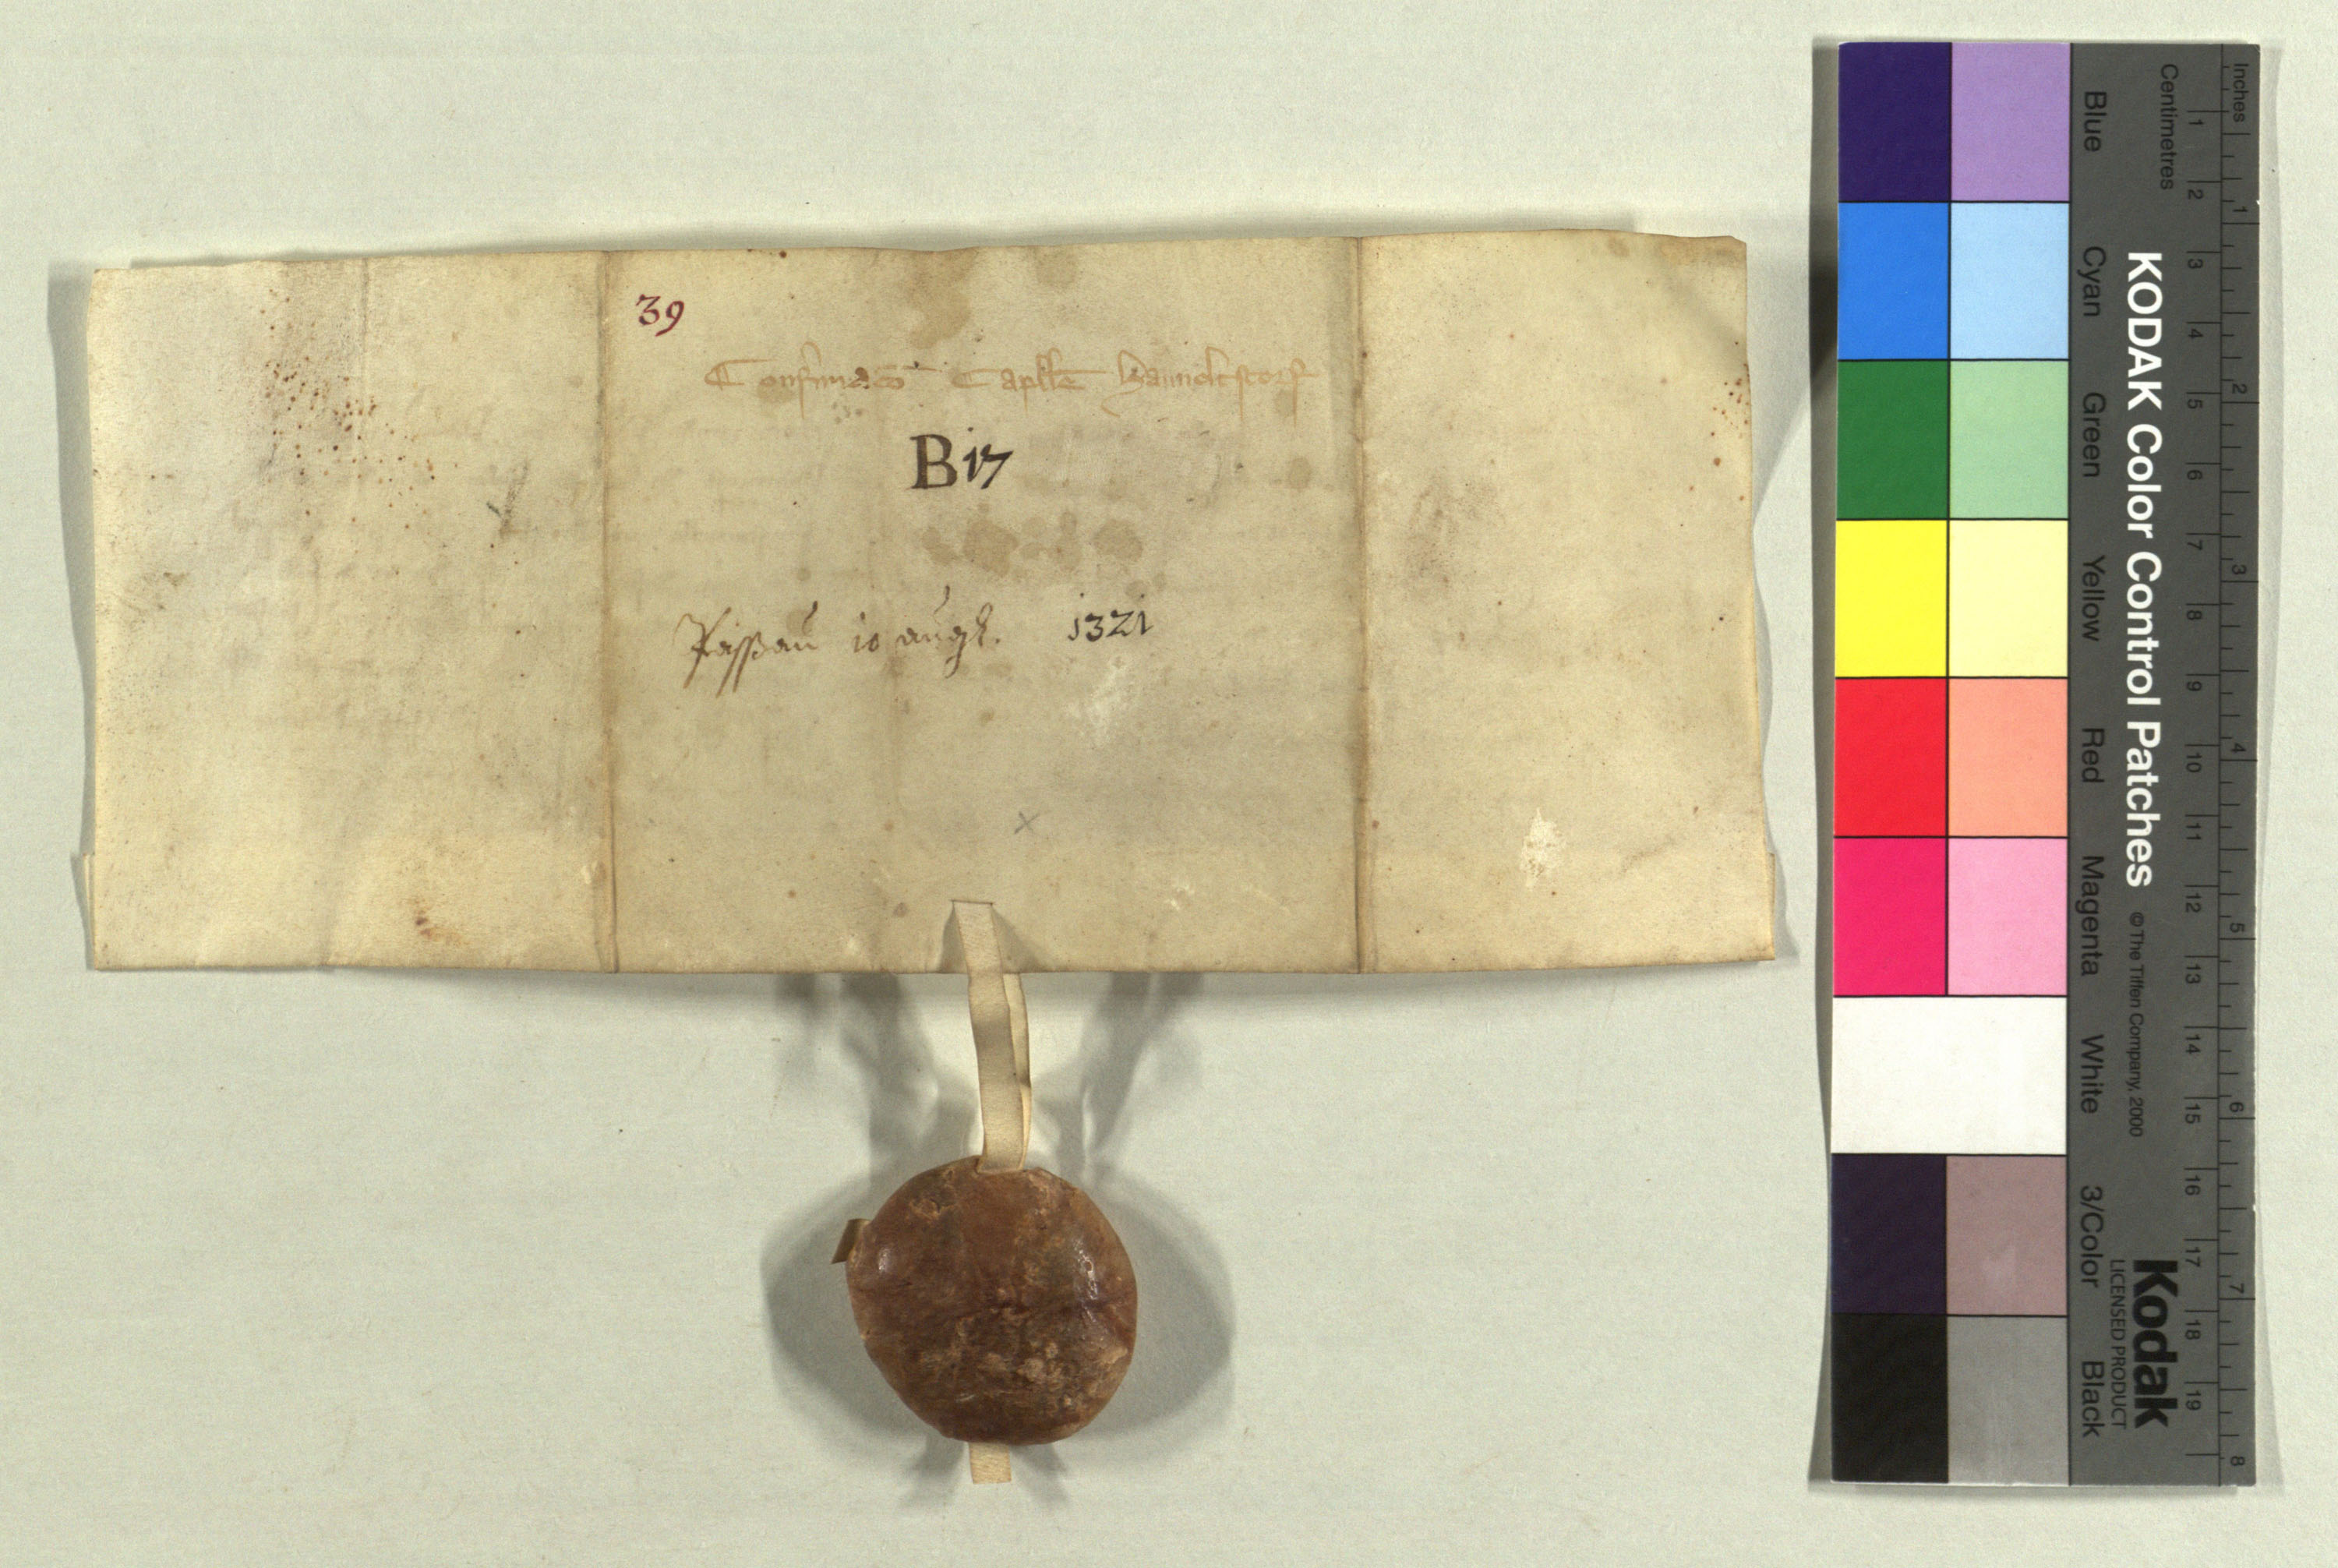 39
Confirmacō Caplle
B17
Passau 10 augst. 1321
Inches
Centimetres
1 2 3 4 5 6 7 8 9 10 11 12 13 14 15 16 17 18 19
1 2 3 4 5 6 7 8
KODAK Color Control Patches © The Tiffen Company, 2000
Kodak
LICENSED PRODUCT
Blue Cyan Green Yellow Red Magenta White 3/Color Black